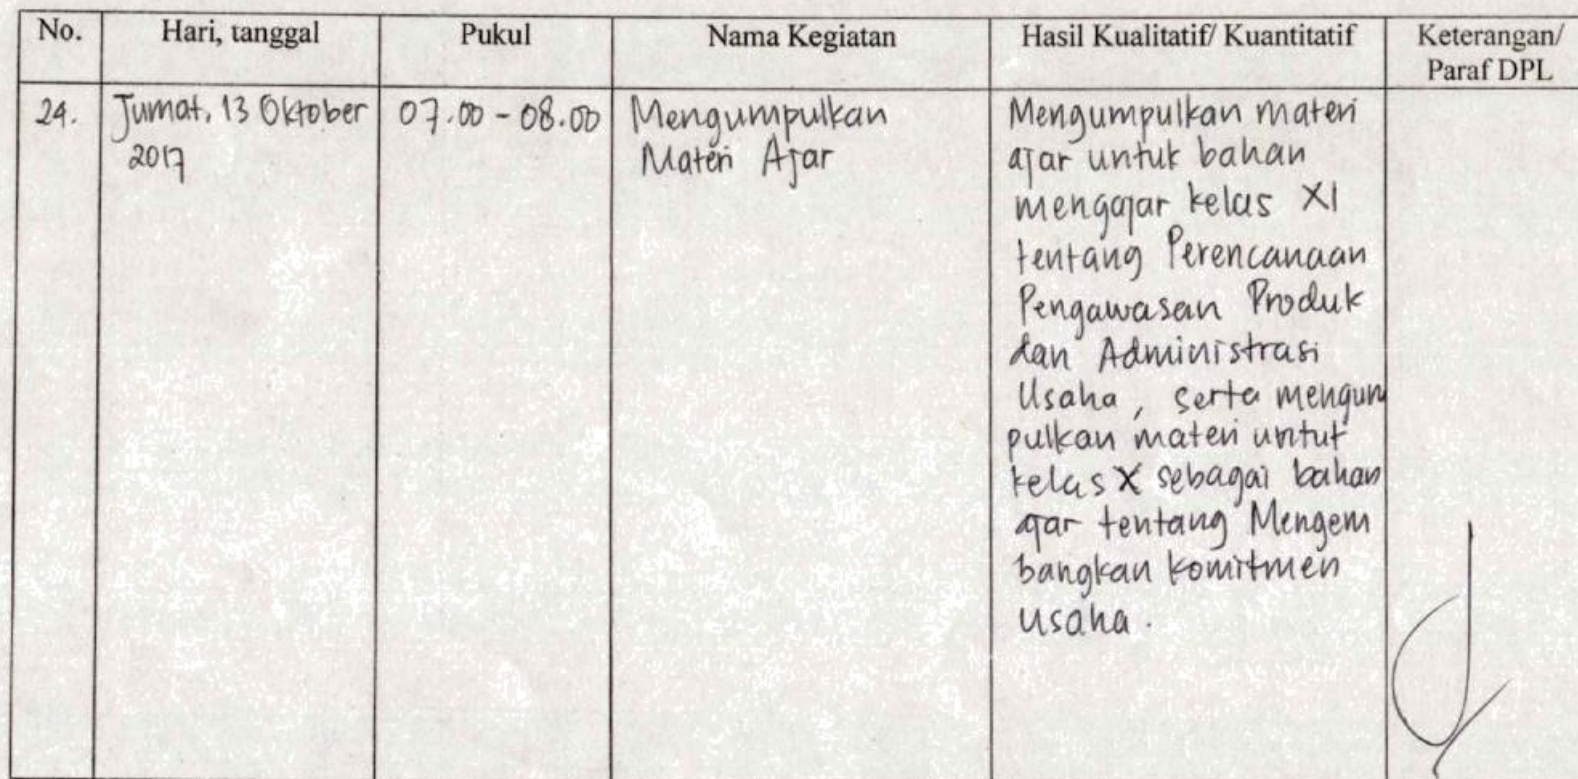 No. Hari, tanggal Pukul Nama Kegiatan Hasil Kualitatif/ Kuantitatif Keterangan/
Paraf DPL
24. Jumat, 13 Oktober 07.00 - 08.00 Mengumpulkan Mengumpulkan materi
2017 Materi Ajar ajar untuk bahan
mengajar kelas XI
tentang Perencanaan
Pengawasan Produk
dan Administrasi
Usaha, serta mengum
pulkan materi untuk
kelas X sebagai bahan
ajar tentang Mengem
bangkan komitmen
usaha.